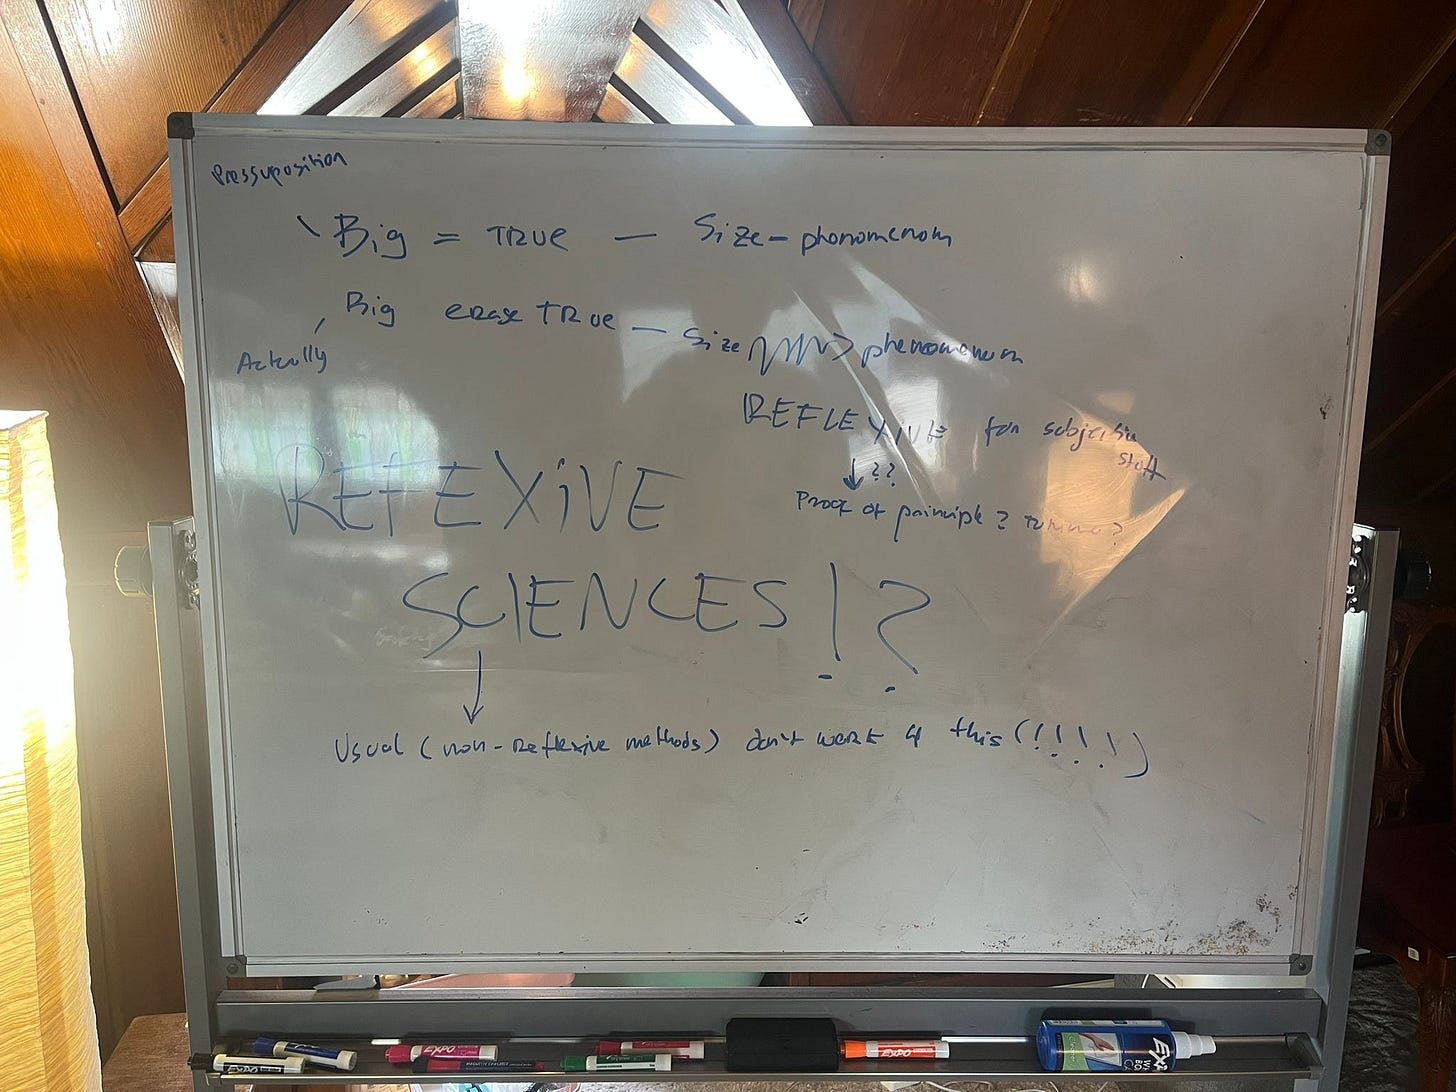 Pressuposition
Big = TRUE — Size - phonomenom
Big erase TRUE — Size phenomenom
Actually
REFLEXIVE for subjective stuff
??
Proof of principle ?
REFEXIVE
SCIENCES !?
Usual (non-Reflexive methods) don't work 4 this (!!!!)
EXPO
EXPO
EXPO
EXPO